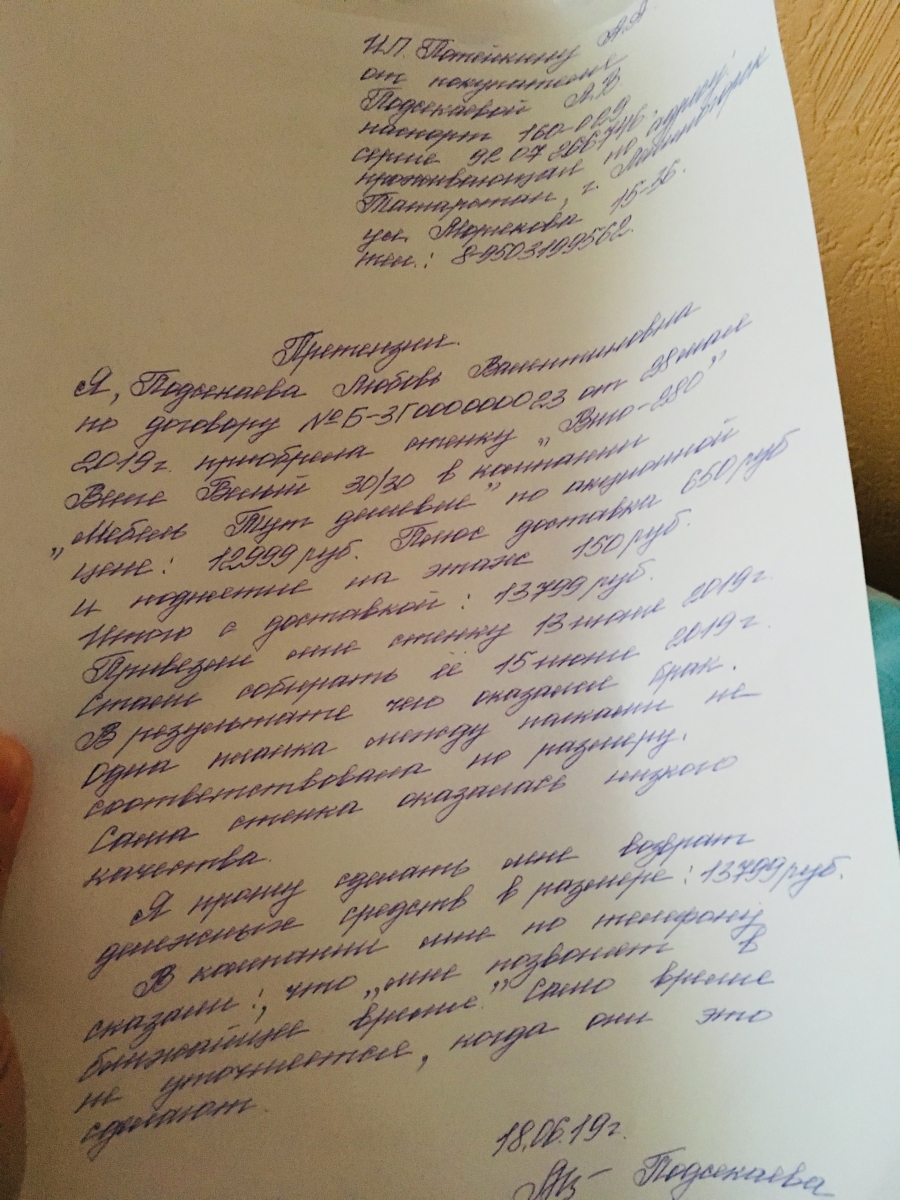 ИП. Потейкину А.А
от покупателя
Подсекаевой Л.В
паспорт 160-029
серия 92 07 266746,
проживающая по адресу:
Татарстан, г.
ул. 15-36.
тел.: 89503199562
Претензия.
Я, Подсекаева Любовь Валентиновна
по договору №Б-3Г0000000023 от 28 мая
2019г. приобрела стенку „Вто-280”
Венге Белый 30/30 в компании
„Мебель Тут дешевле” по акционной
цене: 12999 руб. Плюс доставка 650 руб
и поднятие на этаж 150 руб.
Итого с доставкой: 13799 руб.
Привезли мне стенку 13 июня 2019г.
Стали собирать её 15 июня 2019г.
В результате чего оказался брак.
Одна планка между полками не
соответствовала по размеру.
Сама стенка оказалась низкого
качества.
Я прошу сделать мне возврат
денежных средств в размере: 13799 руб.
В компании мне по телефону
сказали:, что „мне позвонят в
ближайшее время.” Само время
не уточняется, когда они это
сделают.
18.06.19г.
Подсекаева